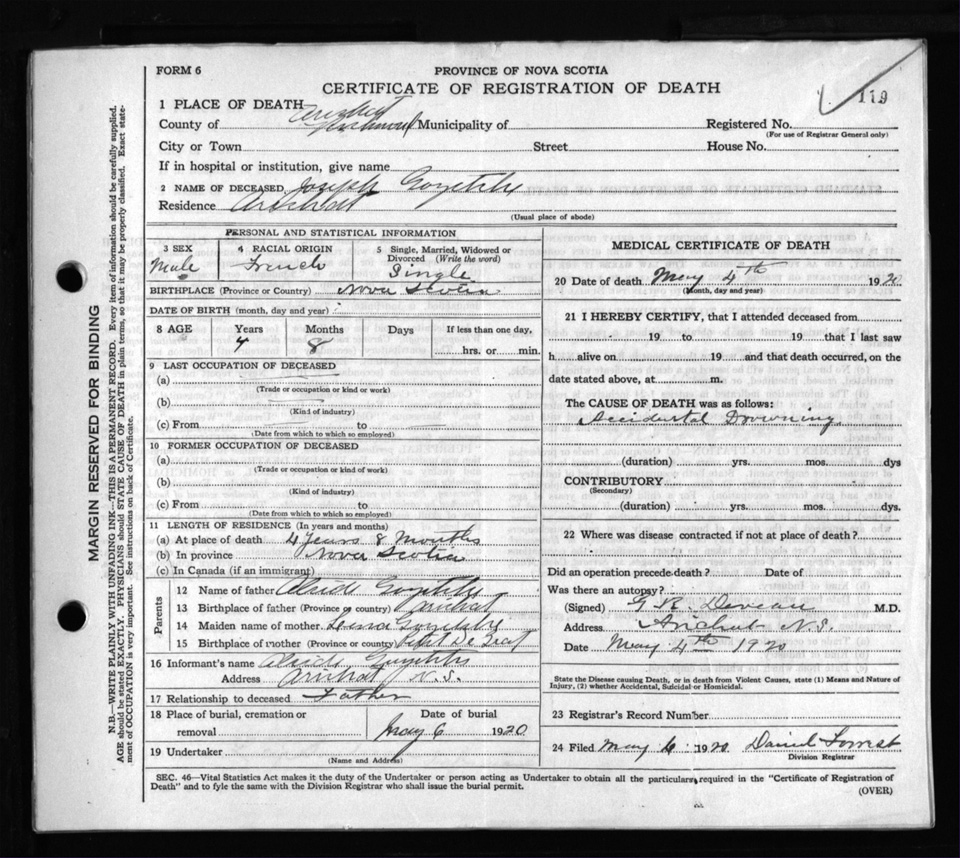 FORM 6
PROVINCE OF NOVA SCOTIA
CERTIFICATE OF REGISTRATION OF DEATH
119
1 PLACE OF DEATH Arichat
County of Richmond Municipality of Registered No.
(For use of Registrar General only)
City or Town Street House No.
If in hospital or institution, give name
2 NAME OF DECEASED Joseph
Residence Arichat
(Usual place of abode)
PERSONAL AND STATISTICAL INFORMATION
3 SEX Male
4 RACIAL ORIGIN French
5 Single, Married, Widowed or Divorced (Write the word) Single
BIRTHPLACE (Province or Country) Nova Scotia
DATE OF BIRTH (month, day and year)
8 AGE Years Months Days If less than one day,
4 8 hrs. or min.
9 LAST OCCUPATION OF DECEASED
(a)
(Trade or occupation or kind or work)
(b)
(Kind of industry)
(c) From to
(Date from which to which so employed)
10 FORMER OCCUPATION OF DECEASED
(a)
(Trade or occupation or kind of work)
(b)
(Kind of industry)
(c) From to
(Date from which to which so employed)
11 LENGTH OF RESIDENCE (In years and months)
(a) At place of death 4 Years 8 Months
(b) In province Nova Scotia
(c) In Canada (if an immigrant)
Parents
12 Name of father Alcide
13 Birthplace of father (Province or country) Arichat
14 Maiden name of mother Lena
15 Birthplace of mother (Province or country) Petit De Grat
16 Informant's name Alcide
Address Arichat N.S.
17 Relationship to deceased Father
18 Place of burial, cremation or removal
Date of burial
May 6 1920
19 Undertaker
(Name and Address)
MEDICAL CERTIFICATE OF DEATH
20 Date of death May 4th 1920
(Month, day and year)
21 I HEREBY CERTIFY, that I attended deceased from
19 to 19 that I last saw
h alive on 19 and that death occurred, on the
date stated above, at m.
The CAUSE OF DEATH was as follows:
Accidental Drowning
(duration) yrs. mos. dys
CONTRIBUTORY
(Secondary)
(duration) yrs. mos. dys.
22 Where was disease contracted if not at place of death?
Did an operation precede death? Date of
Was there an autopsy?
(Signed) G R Deveau M.D.
Address Arichat N.S.
Date May 4th 1920
State the Disease causing Death, or in death from Violent Causes, state (1) Means and Nature of
Injury, (2) whether Accidental, Suicidal or Homicidal.
23 Registrar's Record Number
24 Filed May 6 1920 Daniel Forrest
Division Registrar
SEC. 46—Vital Statistics Act makes it the duty of the Undertaker or person acting as Undertaker to obtain all the particulars required in the "Certificate of Registration of
Death" and to fyle the same with the Division Registrar who shall issue the burial permit.
(OVER)
MARGIN RESERVED FOR BINDING
N.B.—WRITE PLAINLY WITH UNFADING INK—THIS IS A PERMANENT RECORD. Every item of information should be carefully supplied.
AGE should be stated EXACTLY. PHYSICIANS should STATE CAUSE OF DEATH in plain terms, so that it may be properly classified. Exact state-
ment of OCCUPATION is very important. See instructions on back of Certificate.